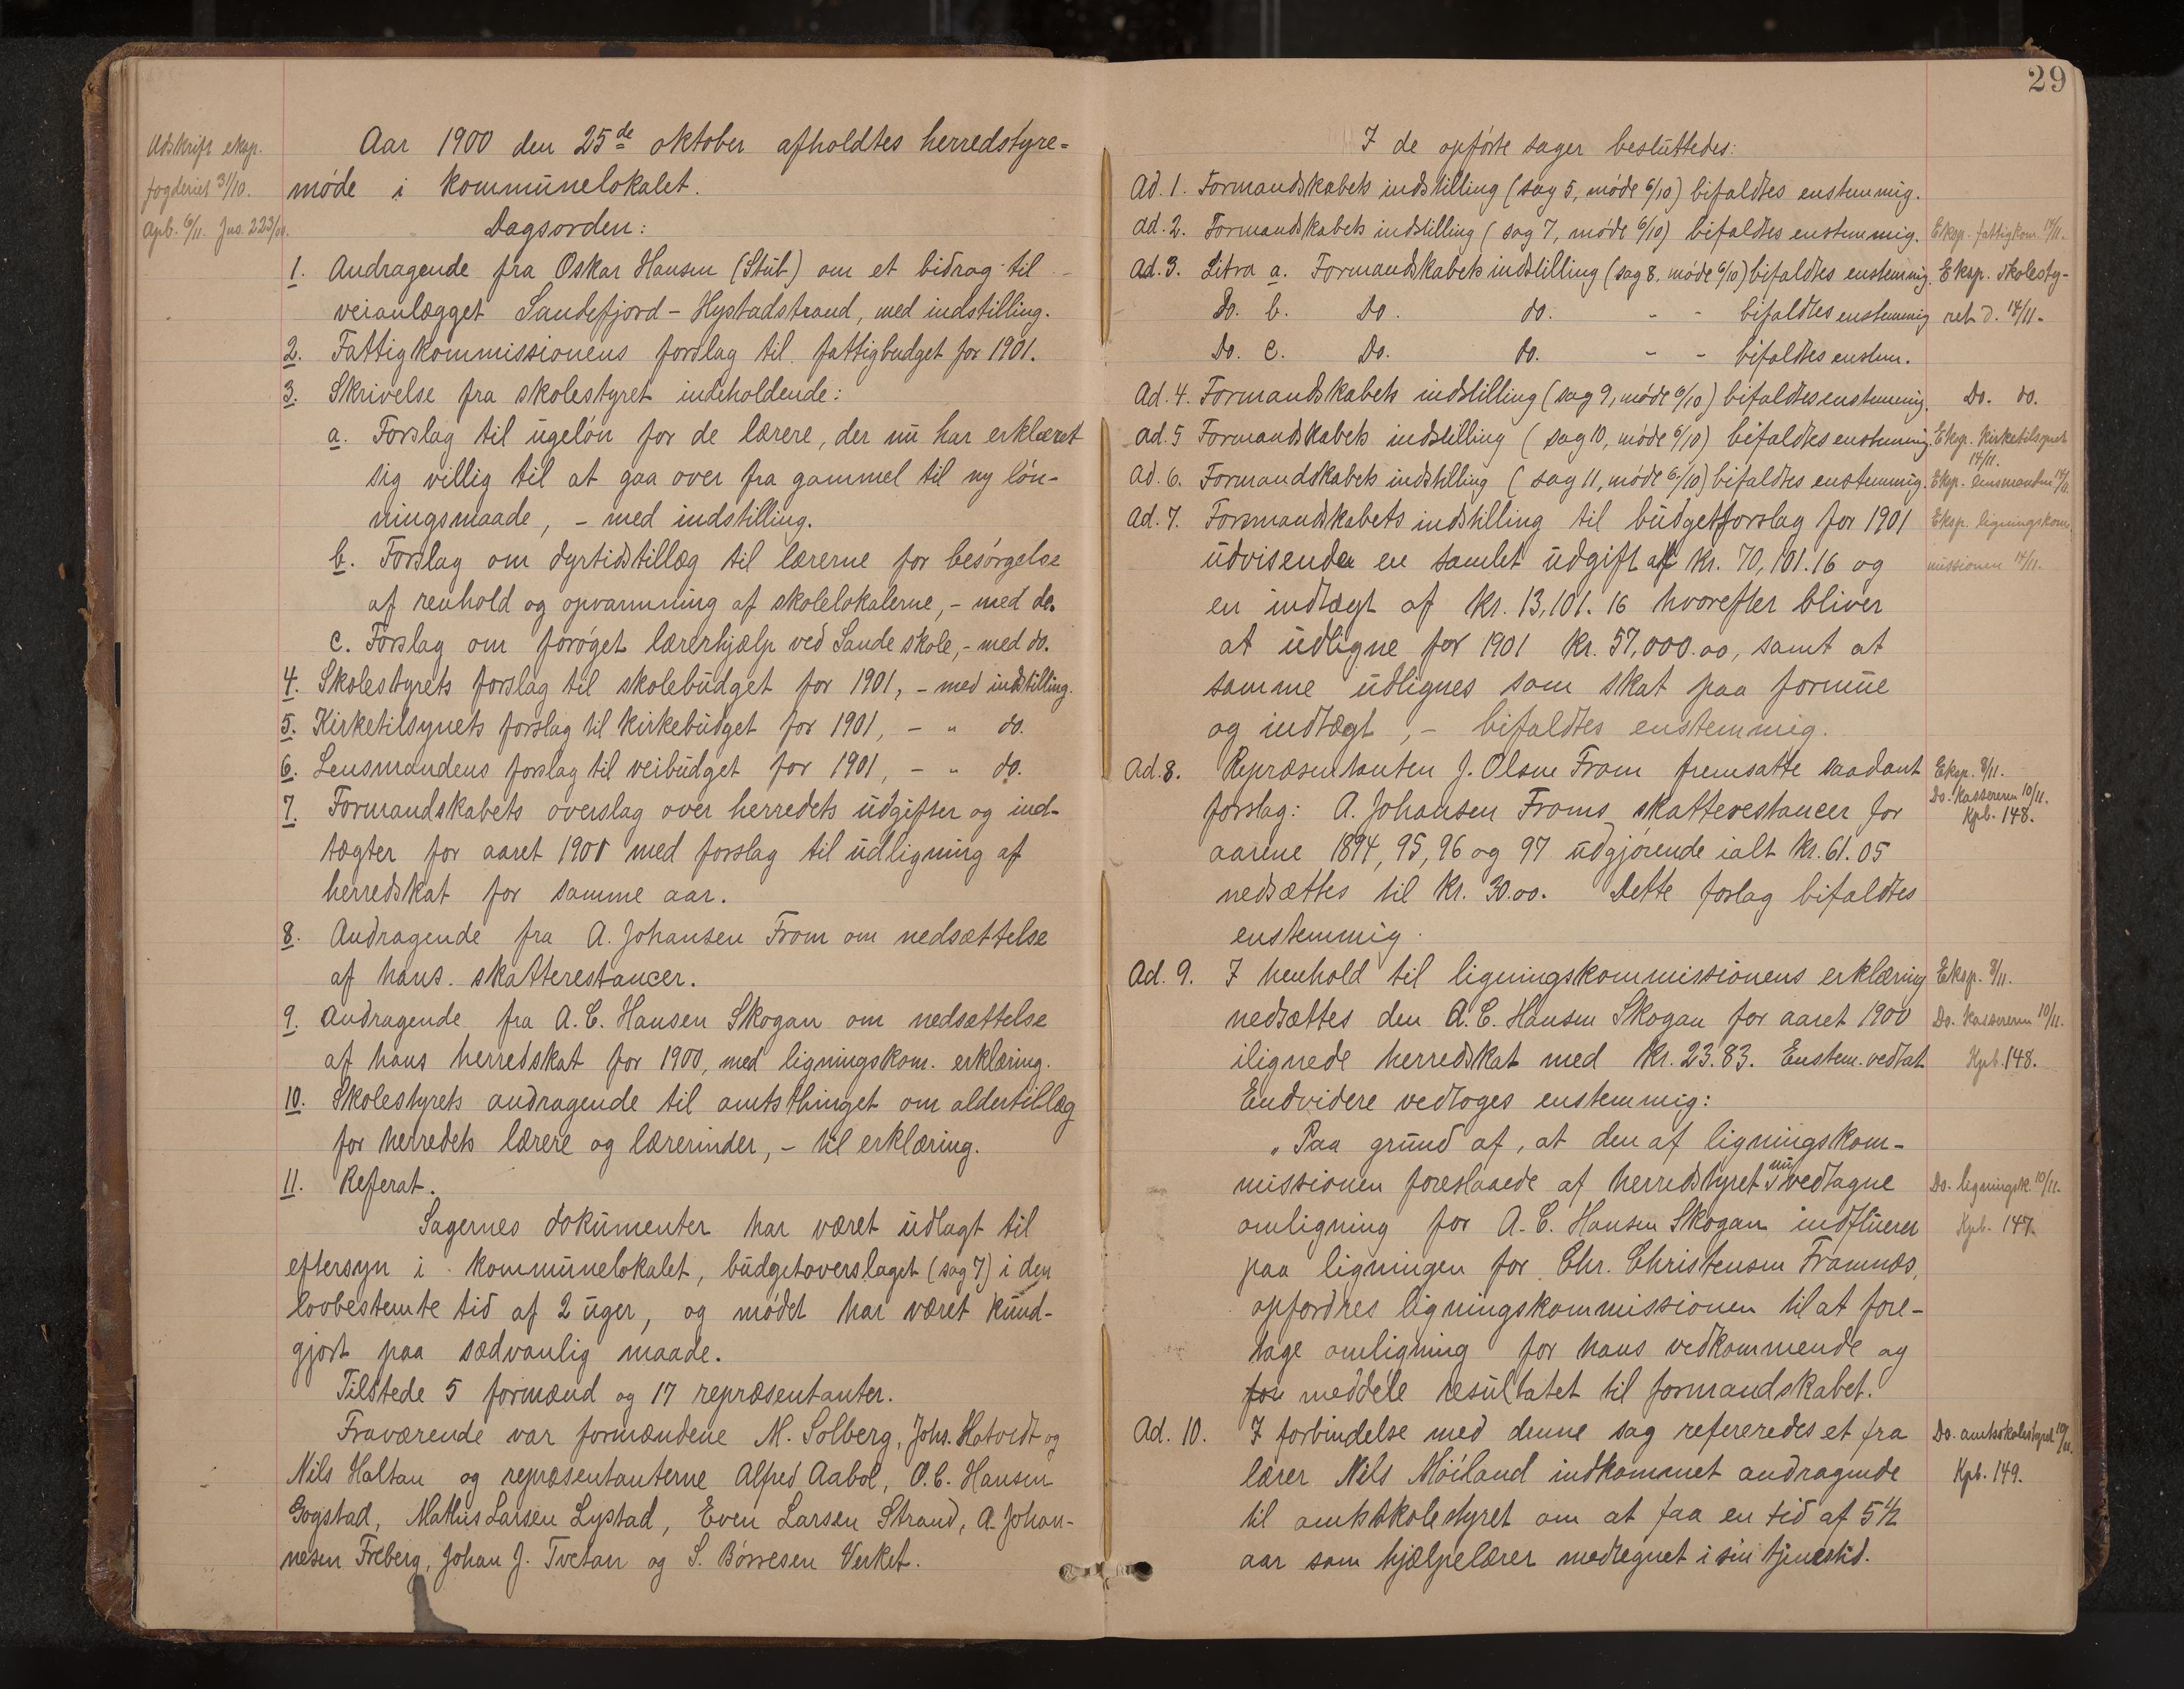 Udskrift eksp.
fogderiet 31/10.
Apb. 6/11. Jns. 223/00.
Aar 1900 den 25de oktober afholdtes herredstyre=
møde i kommunelokalet.
Dagsorden:
1. Andragende fra Oskar Hansen (Stub) om et bidrag til
veianlægget Sandefjord - Hystadstrand, med indstilling.
2. Fattigkommissionens forslag til fattigbudget for 1901.
3. Skrivelse fra skolestyret indeholdende:
a. Forslag til ugeløn for de lærere, der nu har erklæret
sig villig til at gaa over fra gammel til ny løn-
ningsmaade, - med indstilling.
b. Forslag om dyrtidstillæg til lærerne for besørgelse
af renhold og opvarmning af skolelokalerne, - med do.
c. Forslag om forøget lærerhjælp ved Sande skole, - med do.
4. Skolestyrets forslag til skolebudget for 1901, - med indstilling.
5. Kirketilsynets forslag til kirkebudget for 1901, - " do.
6. Lensmandens forslag til veibudget for 1901, - " do.
7. Formandskabets overslag over herredets udgifter og ind-
tægter for aaret 1901 med forslag til udligning af
herredskat for samme aar.
8. Andragende fra A. Johansen Fram om nedsættelse
af hans skatterestancer.
9. Andragende fra A. C. Hansen Skogan om nedsættelse
af hans herredskat for 1900, med ligningskom. erklæring.
10. Skolestyrets andragende til amtsthinget om alderstillæg
for herredets lærere og lærerinder, - til erklæring.
11. Referat.
Sagernes dokumenter har været udlagt til
eftersyn i kommunelokalet, budgetoverslaget (sag 7) i den
lovbestemte tid af 2 uger, og mødet har været kund-
gjort paa sædvanlig maade.
Tilstede 5 formænd og 17 repræsentanter.
Fraværende var formændene M. Solberg, Johs. Hotvedt og
Nils Haltan og repræsentanterne Alfred Aabol, O. C. Hansen
Gogstad, Mathis Larsen Lystad, Even Larsen Strand, A. Johan-
nesen Freberg, Johan J. Tveitan og S. Børresen Verket.
29
I de opførte sager besluttedes:
Ad. 1. Formandskabets indstilling (sag 5, møde 6/10) bifaldtes enstemmig.
Ad. 2. Formandskabets indstilling (sag 7, møde 6/10) bifaldtes enstemmig. Eksp. fattigkom. 14/11.
Ad. 3. Litra a. Formandskabets indstilling (sag 8, møde 6/10) bifaldtes enstemmig. Eksp. skolesty-
Do. b. Do. do. - - bifaldtes enstemmig ret d. 14/11.
Do. c. Do. do. - - bifaldtes enstem.
Ad. 4. Formandskabets indstilling (sag 9, møde 6/10) bifaldtes enstemmig. Do. do.
Ad. 5 Formandskabets indstilling (sag 10, møde 6/10) bifaldtes enstemmig. Eksp. kirketilsynet
14/11.
Ad. 6. Formandskabets indstilling (sag 11, møde 6/10) bifaldtes enstemmig. Eksp. lensmanden 14/11.
Ad. 7. Formandskabets indstilling til budgetforslag for 1901 Eksp. ligningskom-
udvisende en samlet udgift af kr. 70,101.16 og missionen 14/11.
en indtægt af kr. 13,101.16 hvorefter bliver
at udligne for 1901 kr. 57,000.00, samt at
samme udlignes som skat paa formue
og indtægt, - bifaldtes enstemmig.
Ad. 8. Repræsentanten J. Olsen Fram fremsatte saadant Eksp. 8/11.
forslag: A. Johansen Frams skatterestancer for Do. kassereren 10/11.
Kpb. 148.
aarene 1894, 95, 96 og 97 udgjørende ialt kr. 61.05
nedsættes til kr. 30.00. Dette forslag bifaldtes
enstemmig.
Ad. 9. I henhold til ligningskommissionens erklæring Eksp. 8/11.
nedsættes den A. C. Hansen Skogan for aaret 1900 Do. kassereren 10/11.
ilignede herredskat med kr. 23.83. Enstem. vedtat Kpb. 148.
Endvidere vedtoges enstemmig:
„Paa grund af, at den af ligningskom-
missionen foreslaaede af herredstyret nu vedtagne Do. ligningsk. 10/11.
omligning for A. C. Hansen Skogan influerer Kpb. 147.
paa ligningen for Chr. Christensen Framnæs,
opfordres ligningskommissionen til at fore-
tage omligning for hans vedkommende og
for meddele resultatet til formandskabet.
Ad. 10. I forbindelse med denne sag refereredes et fra Do. amtsskolestyret 10/11.
lærer Nils Móiland indkommet andragende Kpb. 149.
til amtsskolestyret om at faa en tid af 5 1/2
aar som hjælpelærer medregnet i sin tjenestid.